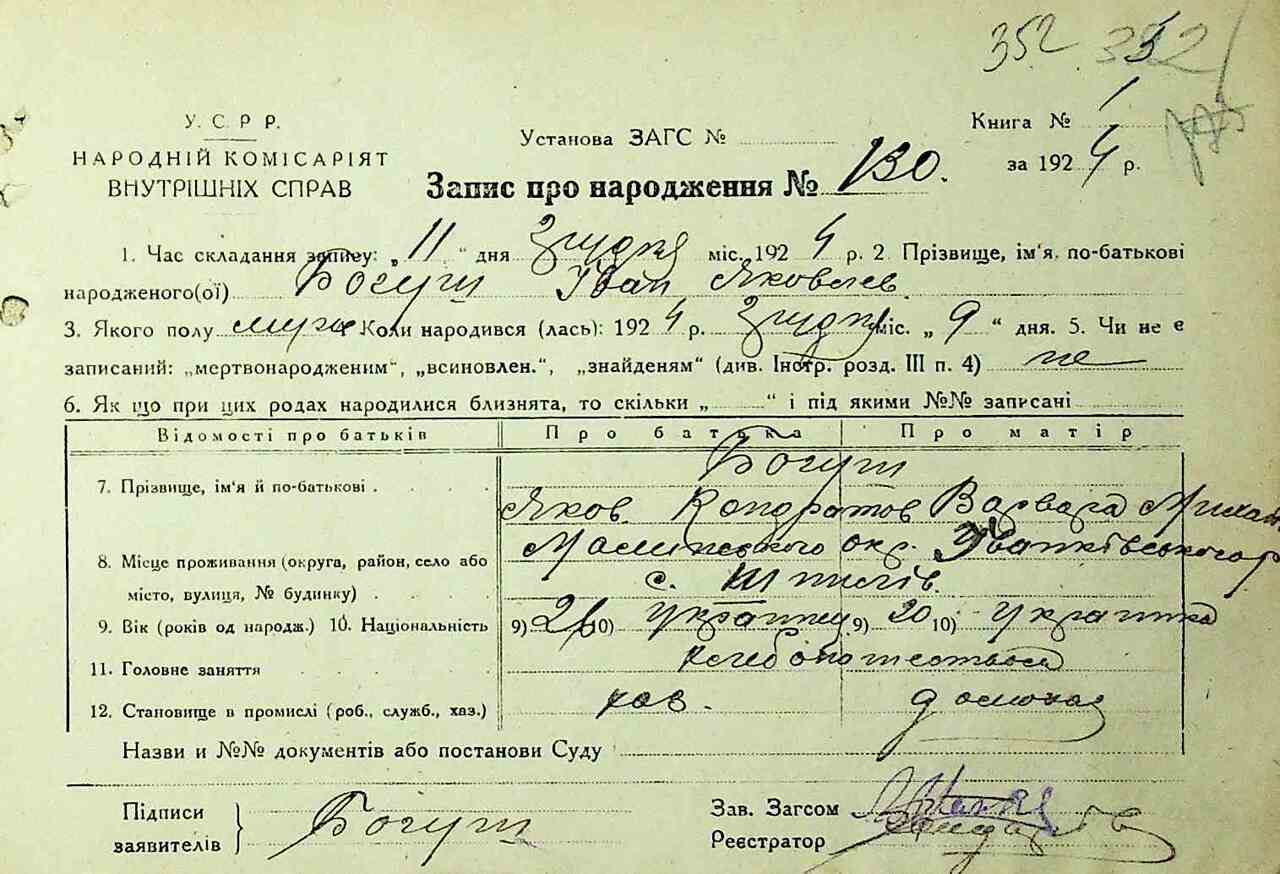 352
У. С. Р Р.
НАРОДНІЙ КОМІСАРІЯТ
ВНУТРІШНІХ СПРАВ
Установа ЗАГС №
Книга № 1
за 1924 р.
Запис про народження № 130.
1. Час складання запису: „11“ дня Згрудня міс. 1924 р. 2. Прізвище, ім'я, по-батькові
народженого(ої) Богуш Іван Яковлев
3. Якого полу муж Коли народився (лась): 1924 р. Згрудня міс. „9“ дня. 5. Чи не є
записаний: „мертвонародженим“, „всиновлен.“, „знайденям“ (див. Інстр. розд. III п. 4) не
6. Як що при цих родах народилися близнята, то скільки „ “ і під якими №№ записані
Відомості про батьків Про батька Про матір
Богуш
7. Прізвище, ім'я й по-батькові
Яков Кондратов Варвара Михай
Малинського окр. Іванківського р
8. Місце проживання (округа, район, село або
місто, вулиця, № будинку)
с. Шпилів.
9. Вік (років од народж.) 10. Національність 9) 21 10) Украинец 9) 20 10) Украинка
хлебопашество
11. Головне заняття
12. Становище в промислі (роб., служб., хаз.) хаз. домохаз
Назви и №№ документів або постанови Суду
Підписи
заявителів
Богуш
Зав. Загсом
Реєстратор